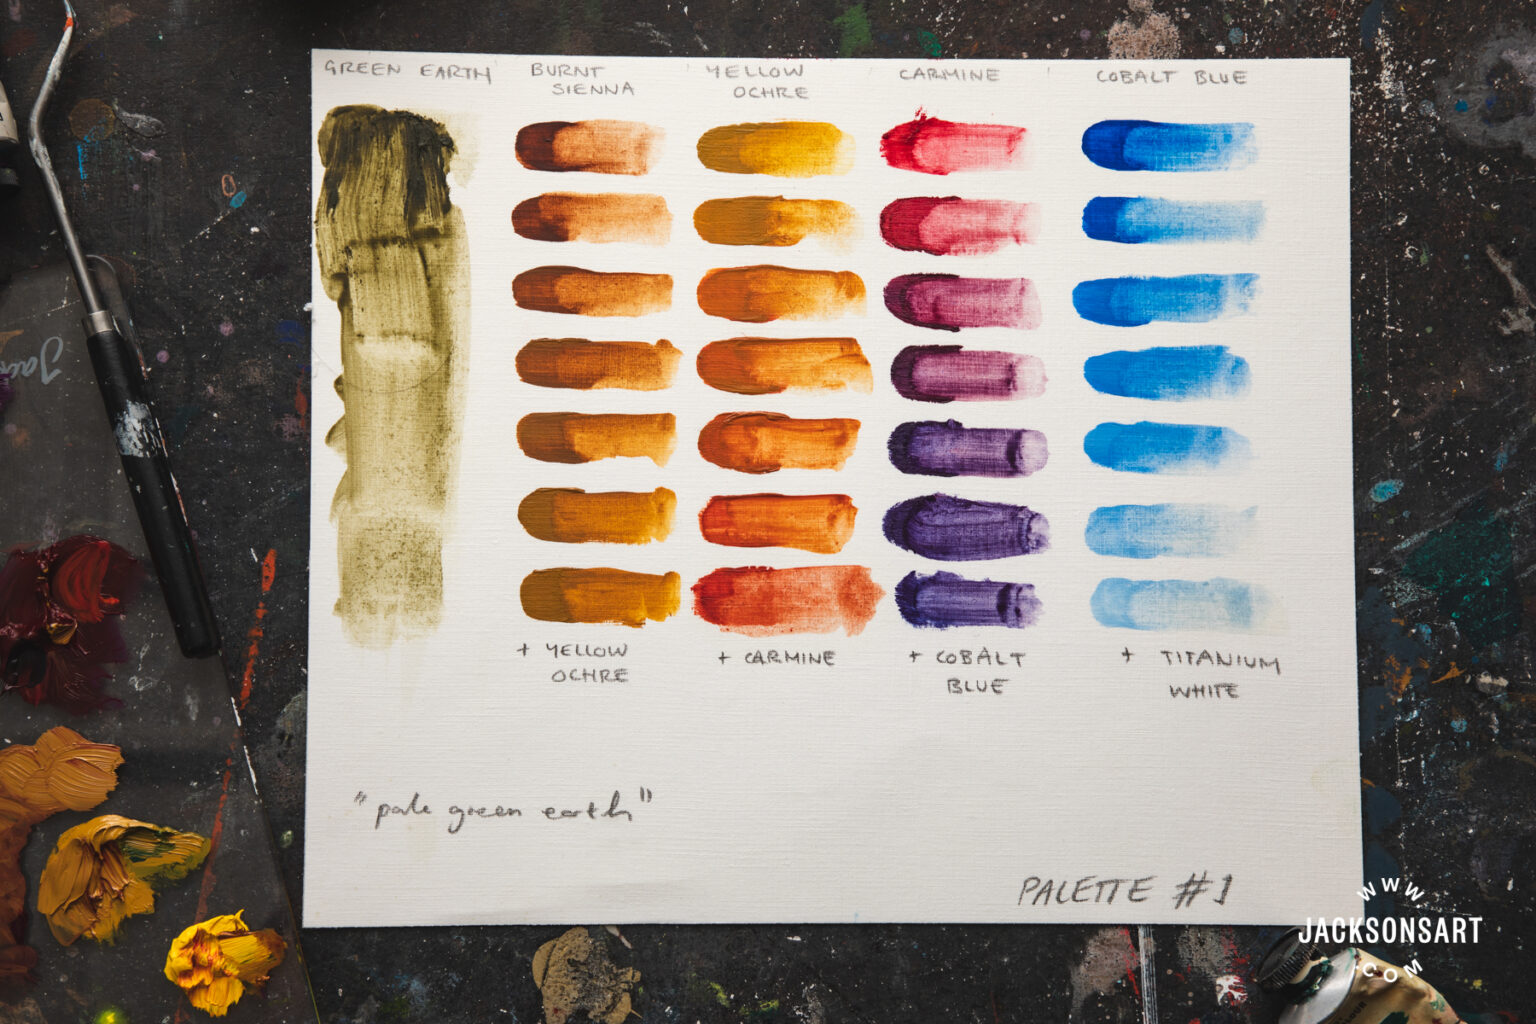 GREEN EARTH
BURNT
SIENNA
YELLOW
OCHRE
CARMINE
COBALT BLUE
+ YELLOW
OCHRE
+ CARMINE
+ COBALT
BLUE
+ TITANIUM
WHITE
"pale green earth"
PALETTE #1
WWW
JACKSONSART
.COM